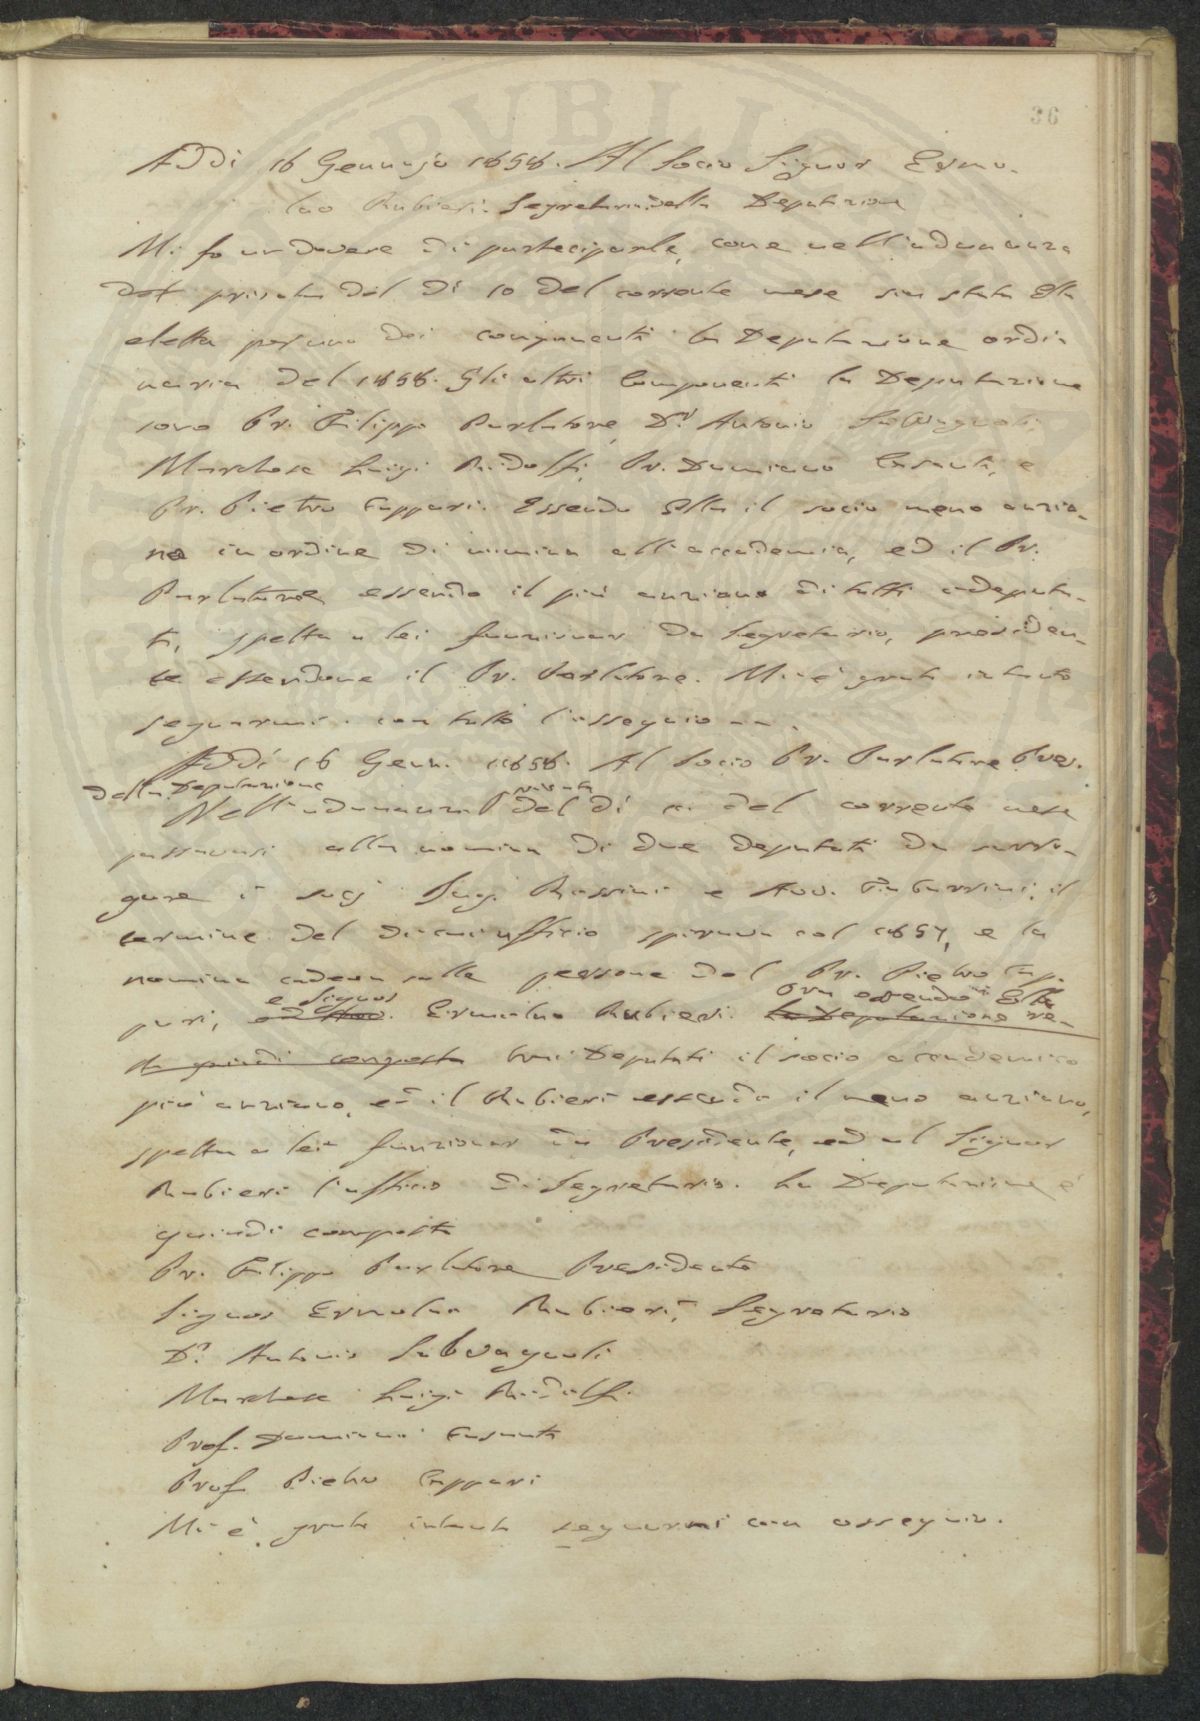 36
Addì 16 Gennajo 1858. Al Socio Signor Ermo-
lao Rubieri Segretario della Deputazione
Mi fo un dovere di partecipare, come nell'adunanza
privata del dì 10 del corrente mese sia stata Ella
eletta per uno dei componenti la Deputazione ordi-
naria del 1858. Gli altri Componenti la Deputazione
sono Pr. Filippo Parlatore, Dr. Antonio Salvagnoli,
Marchese Luigi Ridolfi, Pr. Damiano Casanti, e
Pr. Pietro Cuppari. Essendo Ella il socio meno anzia-
no in ordine di nomina all'accademia, ed il Pr.
Parlatore essendo il più anziano di tutti i deputa-
ti, spetta a lei funzionar da Segretario, presiden-
te essendone il Pr. Parlatore. Mi è grato intanto
segnarmi con tutto l'ossequio
Addì 16 Genn. 1858. Al Socio Pr. Parlatore Pres.
della Deputazione
Nell'adunanza privata del dì 10 del corrente mese
passavasi alla nomina di due deputati da surro-
gare i socj Ing. Rossini e Avv. Tabarrini, il
termine del di cui ufficio spirava col 1857, e la
nomina cadeva sulle persone del Pr. Pietro Cup-
pari, ed Avv. e Signor Ermolao Rubieri. La Deputazione re-
sta quindi composta Ora essendo Ella
tra i Deputati il socio accademico
più anziano, ed il Rubieri essendo il meno anziano,
spetta a lei funzionar da Presidente, ed al Signor
Rubieri l'ufficio di Segretario. La Deputazione è
quindi composta
Pr. Filippo Parlatore Presidente
Signor Ermolao Rubieri, Segretario
Dr. Antonio Salvagnoli
Marchese Luigi Ridolfi
Prof. Damiano Casanti
Prof. Pietro Cuppari
Mi è grato intanto segnarmi con ossequio.